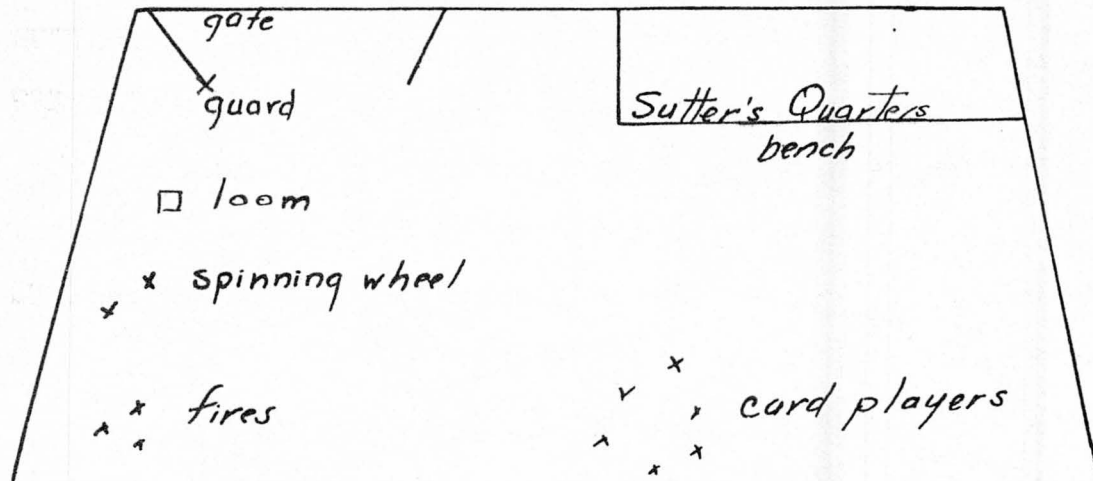 gate
guard
Sutter's Quarters
bench
loom
spinning wheel
fires
card players